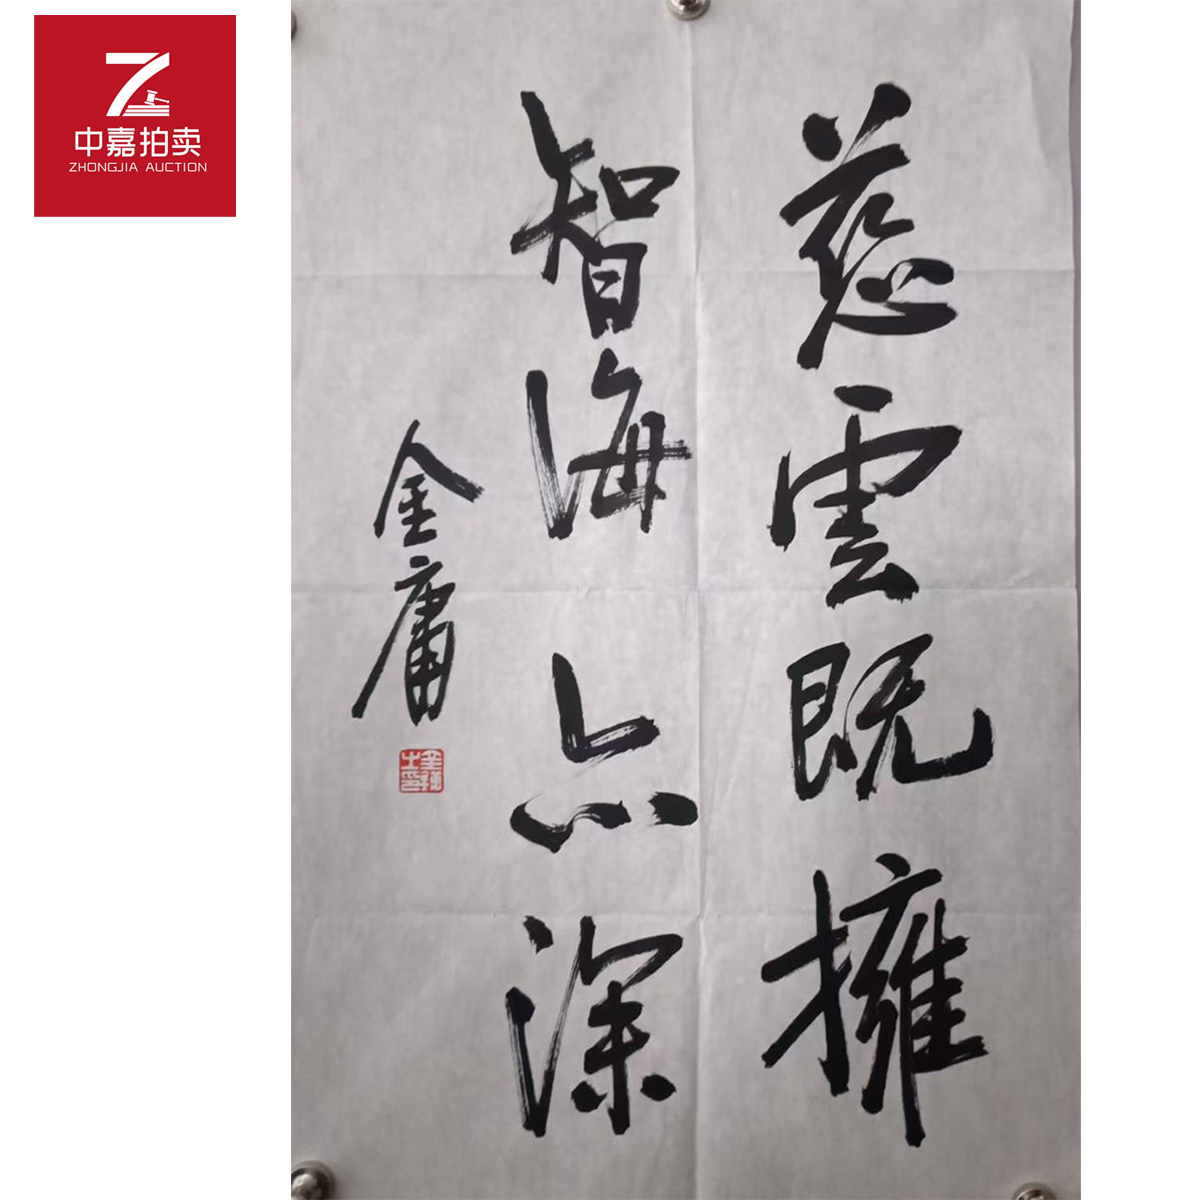 中嘉拍卖
ZHONGJIA AUCTION
慈雲既擁
智海亦深
金庸